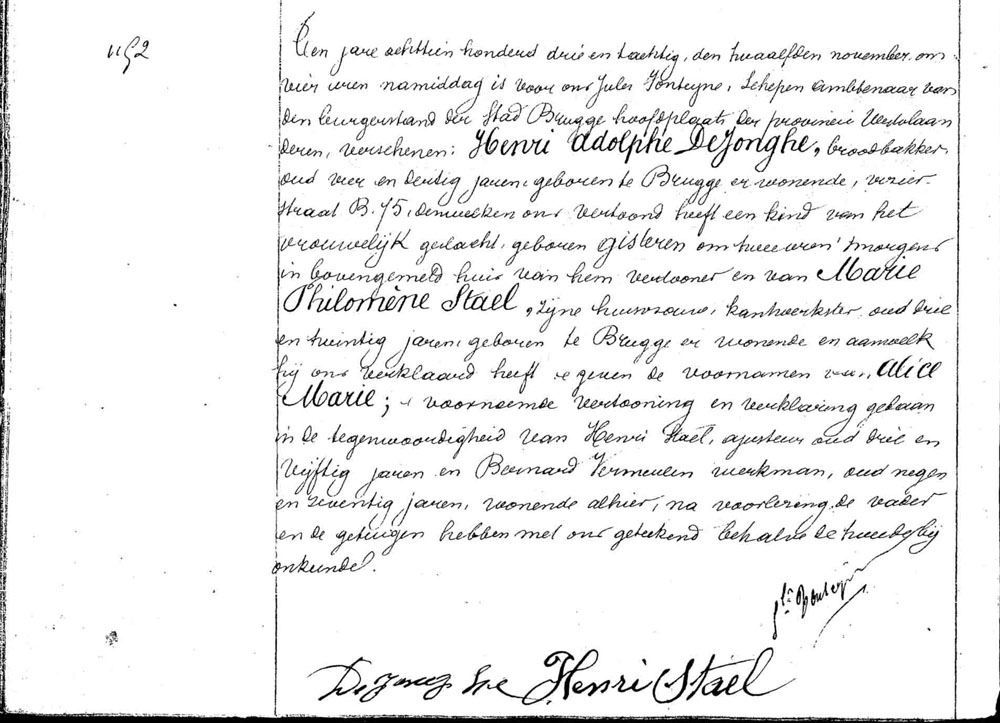 1152
Ten jare achttien honderd drie en tachtig, den twaalfden november om
vier uren namiddag is voor ons Jules Fonteyne, Schepen Ambtenaar van
den burgerstand der Stad Brugge hoofdplaats der provincie Westvlaan
deren, verschenen: Henri Adolphe DeJonghe, broodbakker,
oud vier en dertig jaren, geboren te Brugge er wonende,
straat B. 75, denwelken ons vertoond heeft een kind van het
vrouwelijk geslacht, geboren gisteren om twee uren 's morgens
in bovengemeld huis van hem vertooner en van Marie
Philomène Stael, zijne huisvrouw, kantwerkster, oud drie
en twintig jaren, geboren te Brugge er wonende en aan welk
hij ons verklaard heeft te geven de voornamen van Alice
Marie; de voornoemde vertooning en verklaring gedaan
in de tegenwoordigheid van Henri Stael, ajusteur oud drie en
vijftig jaren en Bernard Vermeulen werkman, oud negen
en zeventig jaren, wonende alhier, na voorlezing, de vader
en de getuigen hebben met ons geteekend behalve de tweede bij
onkunde.
Henri Stael